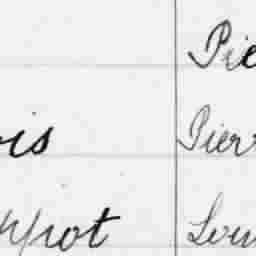 Pie
ois Pierr
ppot Lou